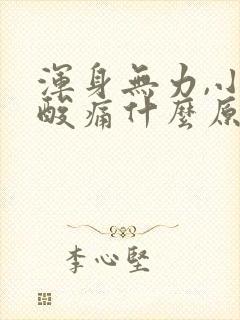 渾身無力,小
酸痛什麼原
李心堅